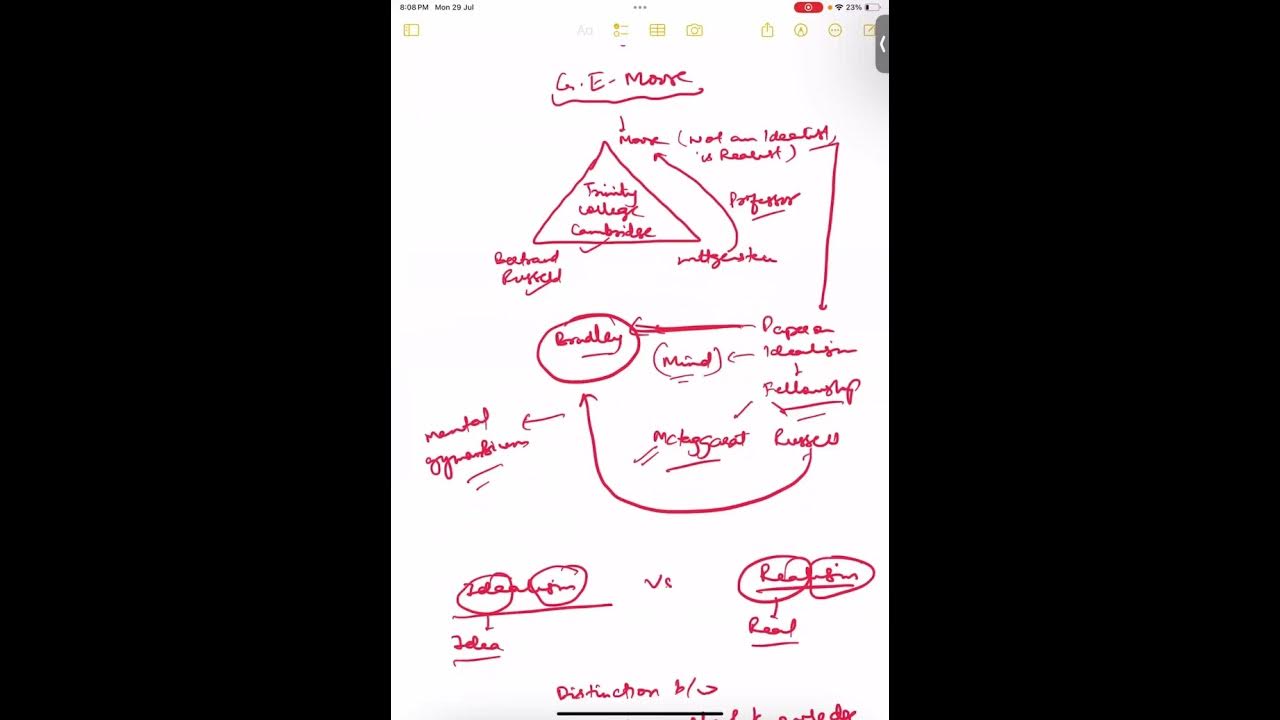 8:08 PM Mon 29 Jul
23%
Aa
G.E-Moore
Moore (Not an Idealist,
is Realist)
Trinity
college
Cambridge
Professor
Bertrand
Russell
Wittgenstein
Bradley
Paper on
Idealism
(Mind)
Fellowship
Mctaggart Russell
Mental
Idealism vs Realism
Idea
Real
Distinction b/w